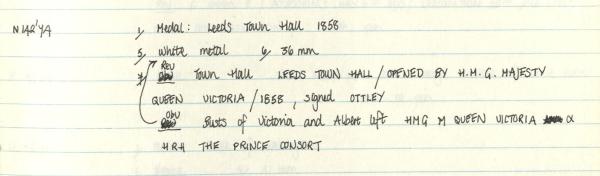 N142'YA 1, Medal: Leeds Town Hall 1858
5, White metal 6, 36 mm
Rev
7, Town Hall LEEDS TOWN HALL / OPENED BY H.M.G. MAJESTY
QUEEN VICTORIA / 1858, signed OTTLEY
Obv
Busts of Victoria and Albert left HMG M QUEEN VICTORIA &
HRH THE PRINCE CONSORT